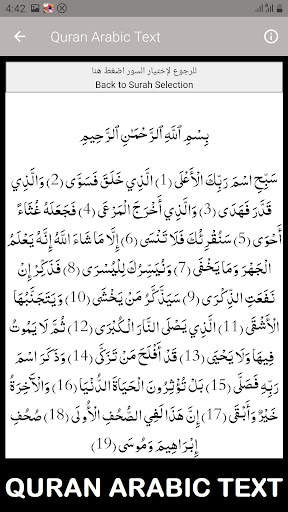 4:42
Quran Arabic Text
للرجوع لإختيار السور اضغط هنا
Back to Surah Selection
بِسْمِ ٱللَّهِ ٱلرَّحْمَٰنِ ٱلرَّحِيمِ
سَبِّحِ اسْمَ رَبِّكَ الْأَعْلَى (1) الَّذِي خَلَقَ فَسَوَّى (2) وَالَّذِي
قَدَّرَ فَهَدَى (3) وَالَّذِي أَخْرَجَ الْمَرْعَى (4) فَجَعَلَهُ غُثَاءً
أَحْوَى (5) سَنُقْرِئُكَ فَلَا تَنْسَى (6) إِلَّا مَا شَاءَ اللَّهُ إِنَّهُ يَعْلَمُ
الْجَهْرَ وَمَا يَخْفَى (7) وَنُيَسِّرُكَ لِلْيُسْرَى (8) فَذَكِّرْ إِنْ
نَفَعَتِ الذِّكْرَى (9) سَيَذَّكَّرُ مَنْ يَخْشَى (10) وَيَتَجَنَّبُهَا
الْأَشْقَى (11) الَّذِي يَصْلَى النَّارَ الْكُبْرَى (12) ثُمَّ لَا يَمُوتُ
فِيهَا وَلَا يَحْيَى (13) قَدْ أَفْلَحَ مَنْ تَزَكَّى (14) وَذَكَرَ اسْمَ
رَبِّهِ فَصَلَّى (15) بَلْ تُؤْثِرُونَ الْحَيَاةَ الدُّنْيَا (16) وَالْآخِرَةُ
خَيْرٌ وَأَبْقَى (17) إِنَّ هَذَا لَفِي الصُّحُفِ الْأُولَى (18) صُحُفِ
إِبْرَاهِيمَ وَمُوسَى (19)
QURAN ARABIC TEXT